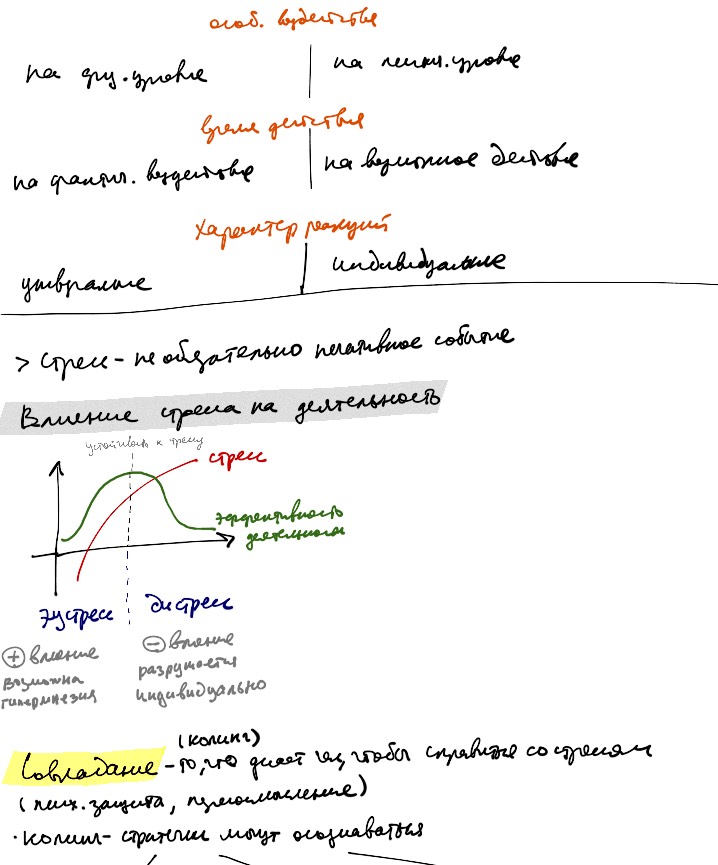 особ. воздействия
на физ. уровне
на психич. уровне
время действия
на фактич. воздействие
на возможное действие
характер реакций
универсальные
индивидуальные
> Стресс - не обязательно негативное событие
Влияние стресса на деятельность
устойчивость к стрессу
стресс
эффективность
деятельности
эустресс
дистресс
+ влияние
возможна
гипермнезия
- влияние
разрушается
индивидуально
(копинг)
Совладание - то, что делает чел, чтобы справиться со стрессом
(псих. защита, переосмысление)
· копинг-стратегии могут осознаваться